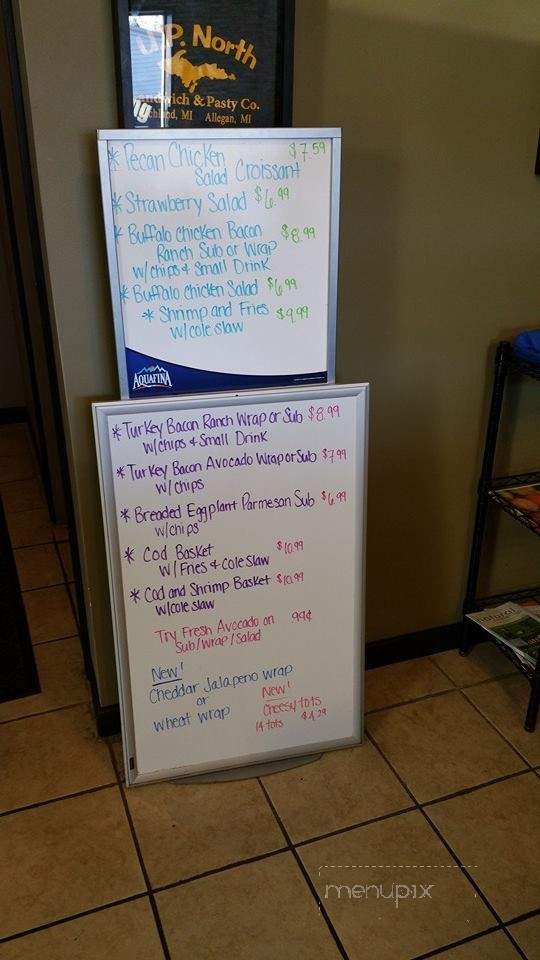 U.P. North
Sandwich & Pasty Co.
Richland, MI Allegan, MI
* Pecan Chicken $7.59
Salad Croissant
* Strawberry Salad $6.99
* Buffalo Chicken Bacon $8.99
Ranch Sub or Wrap
w/chips & Small Drink
* Buffalo Chicken Salad $6.99
* Shrimp and Fries $9.99
w/ cole slaw
AQUAFINA
* Turkey Bacon Ranch Wrap or Sub $8.99
w/chips & Small Drink
* Turkey Bacon Avocado Wrap or Sub $7.99
w/ chips
* Breaded Eggplant Parmesan Sub $6.99
w/chips
* Cod Basket $10.99
w/ Fries & Cole Slaw
* Cod and Shrimp Basket $10.99
w/cole slaw
Try Fresh Avocado on 99¢
Sub/wrap/salad
New!
Cheddar Jalapeno wrap
or
wheat wrap
New!
Cheesy tots
14 tots $4.29
natural
menupix